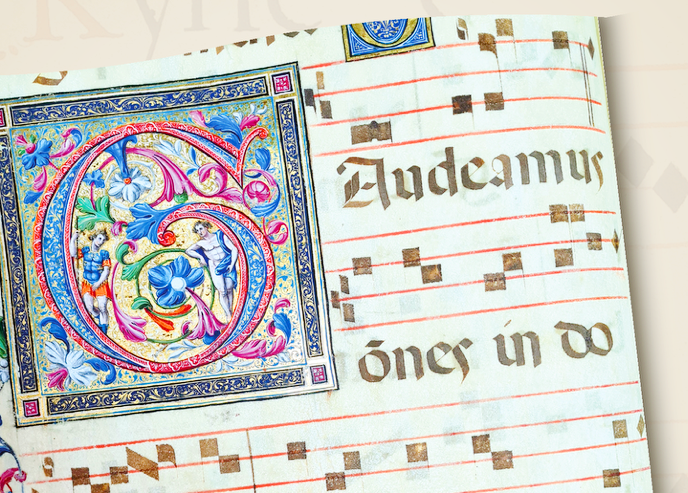 Kyrie
GAudeamus
ōnes in do